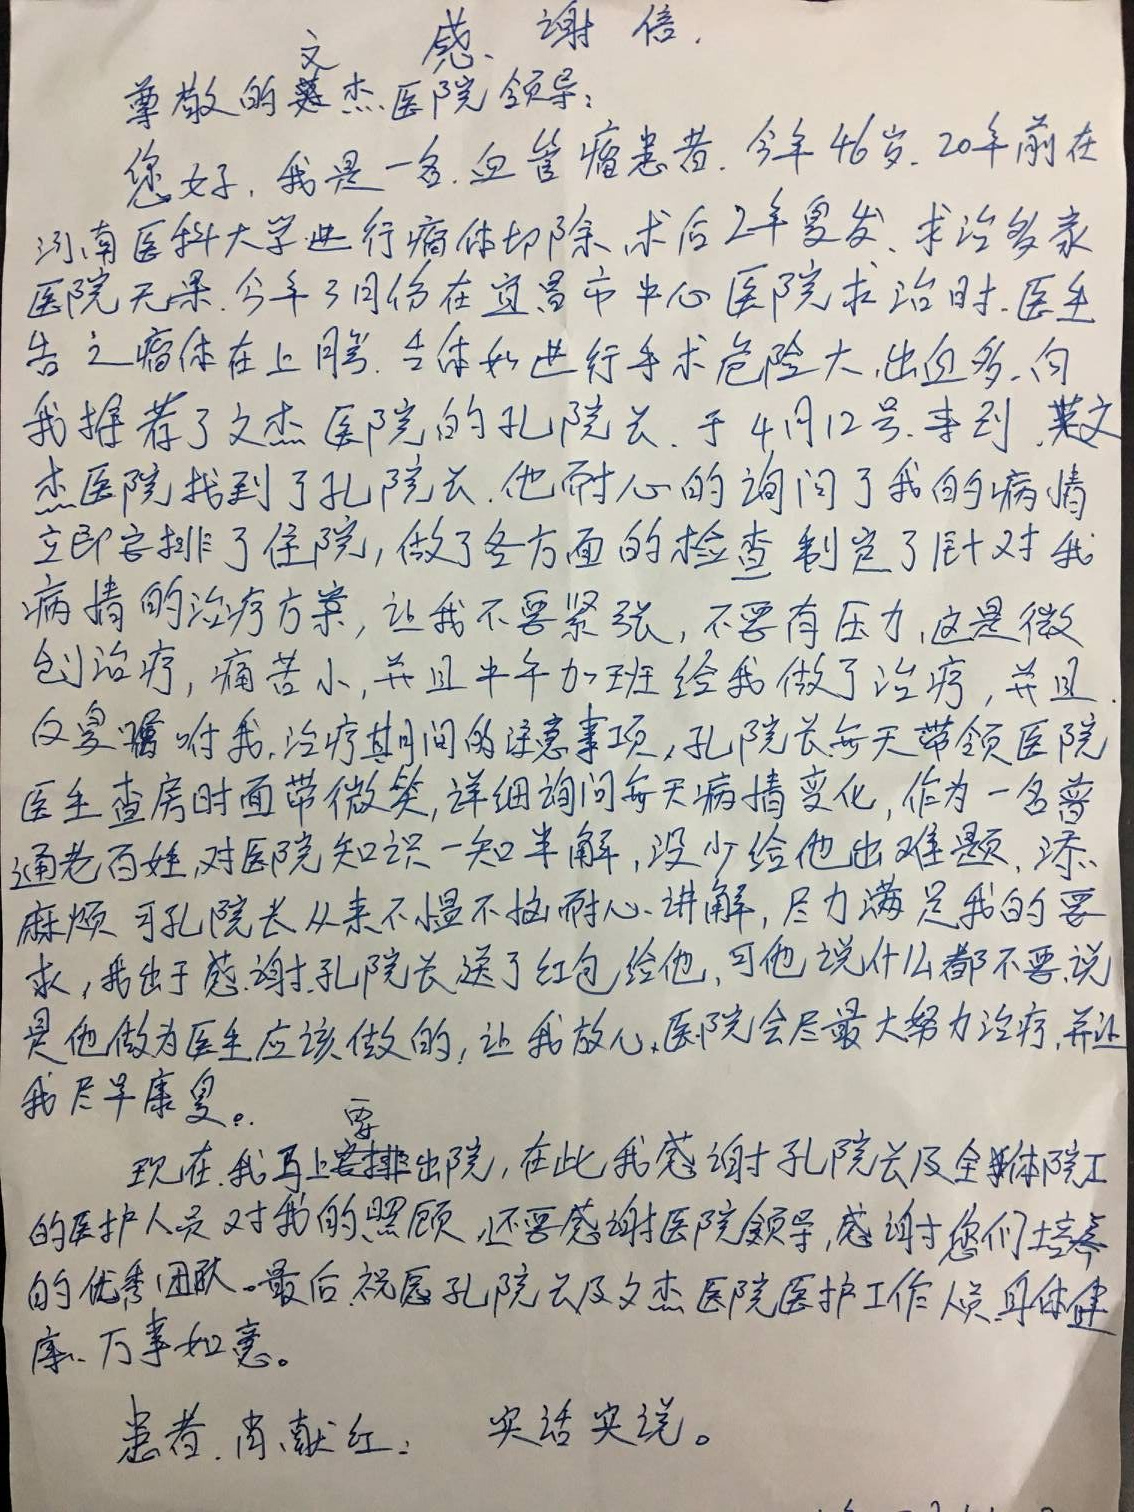 感谢信.
尊敬的文杰医院领导:
您好,我是一名.血管瘤患者.今年46岁.20年前在
河南医科大学进行瘤体切除,术后2年复发、求治多家
医院无果.今年3月份在宜昌市中心医院求治时.医生
告之瘤体在上腭.舌体如进行手术危险大,出血多.向
我推荐了文杰医院的孔院长.于4月12号.来到.文
杰医院找到了孔院长.他耐心的询问了我的病情
立即安排了住院,做了各方面的检查制定了针对我
病情的治疗方案,让我不要紧张,不要有压力,这是微
创治疗,痛苦小,并且中午加班给我做了治疗,并且
反复嘱咐我.治疗期间的注意事项,孔院长每天带领医院
医生查房时面带微笑,详细询问每天病情变化,作为一名普
通老百姓,对医院知识一知半解,没少给他出难题、添
麻烦可孔院长从来不愠不恼耐心讲解,尽力满足我的要
求,我出于感谢孔院长送了红包给他,可他说什么都不要,说
是他做为医生应该做的,让我放心,医院会尽最大努力治疗,并让
我尽早康复。
现在.我马上要出院,在此我感谢孔院长及全体院工
的医护人员对我的照顾,还要感谢医院领导,感谢您们培养
的优秀团队。最后.祝愿孔院长及文杰医院医护工作人员身体健
康、万事如意。
患者.肖献红: 实话实说。